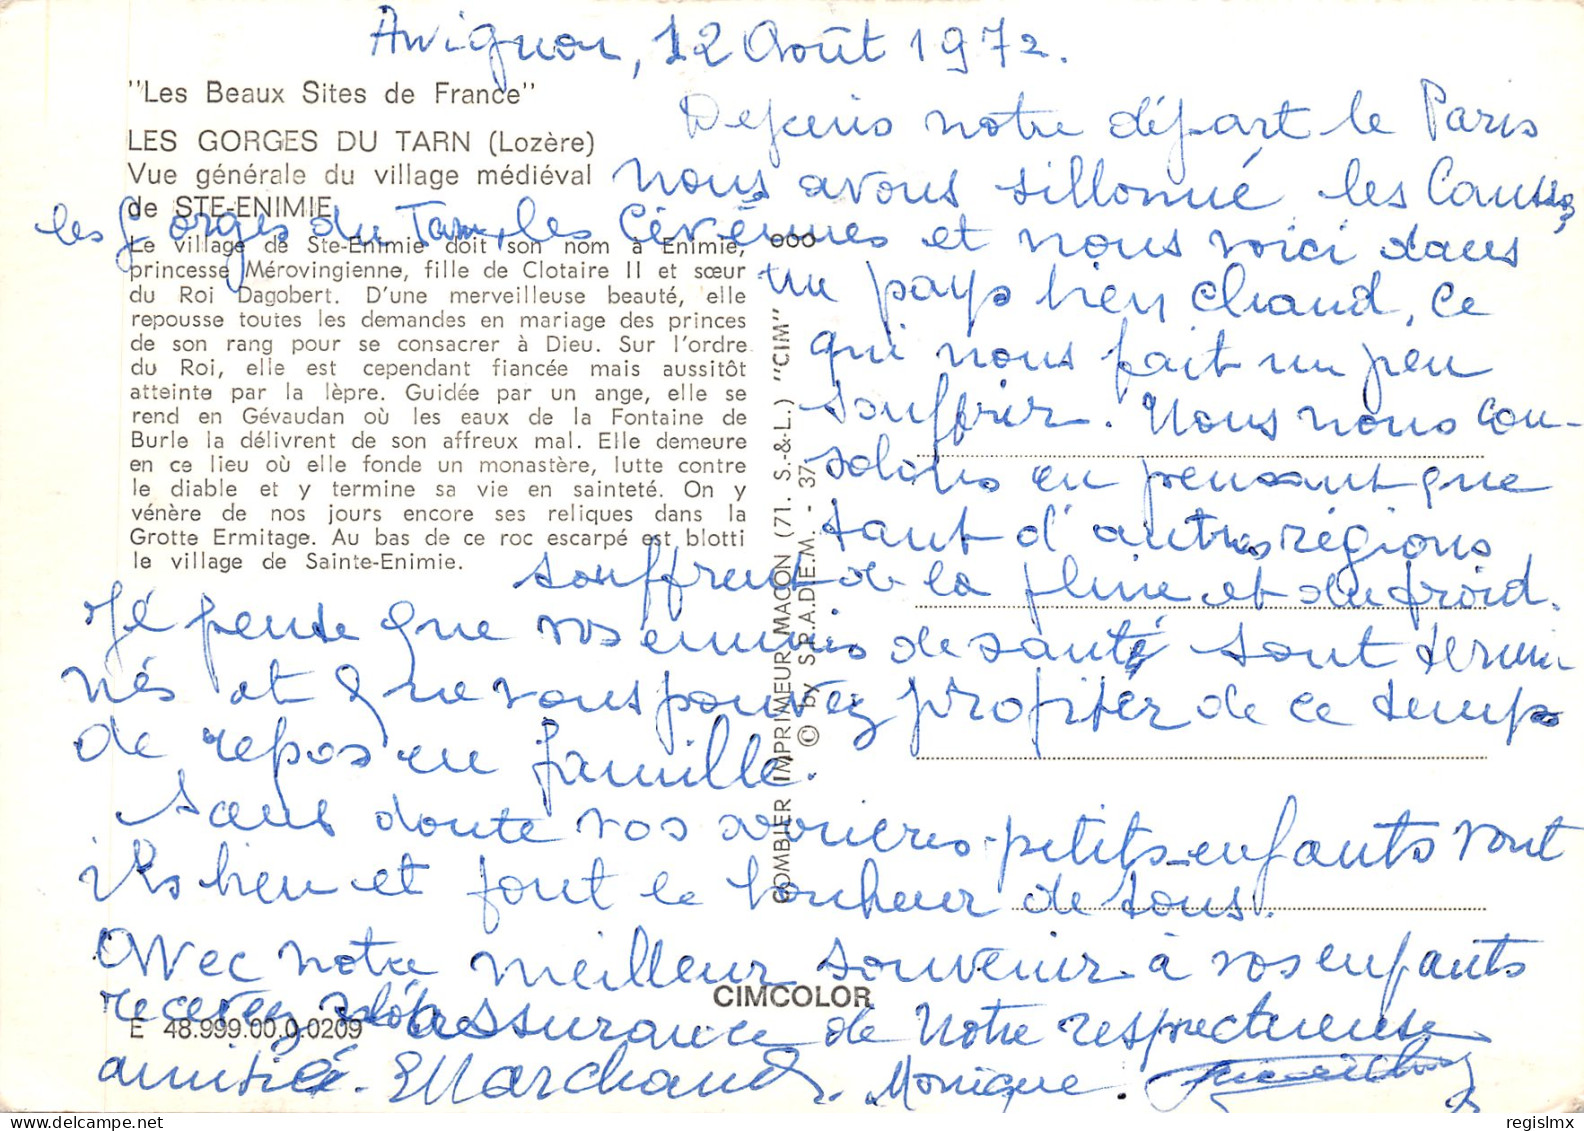 Avignon, 12 Août 1972.
"Les Beaux Sites de France"
LES GORGES DU TARN (Lozère)
Vue générale du village médiéval
de STE-ENIMIE
Le village de Ste-Enimie doit son nom à Enimie,
princesse Mérovingienne, fille de Clotaire II et sœur
du Roi Dagobert. D'une merveilleuse beauté, elle
repousse toutes les demandes en mariage des princes
de son rang pour se consacrer à Dieu. Sur l'ordre
du Roi, elle est cependant fiancée mais aussitôt
atteinte par la lèpre. Guidée par un ange, elle se
rend en Gévaudan où les eaux de la Fontaine de
Burle la délivrent de son affreux mal. Elle demeure
en ce lieu où elle fonde un monastère, lutte contre
le diable et y termine sa vie en sainteté. On y
vénère de nos jours encore ses reliques dans la
Grotte Ermitage. Au bas de ce roc escarpé est blotti
le village de Sainte-Enimie.
Depuis notre départ de Paris
nous avons sillonné les Causses,
les Gorges du Tarn, les Cévénnes et nous voici dans
un pays bien chaud, ce
qui nous fait un peu
souffrir. Nous nous con-
solons en pensant que
tant d'autres régions
souffrent de la pluie et du froid.
Je pense que vos ennuis de santé sont termi
nés et que vous pouvez profiter de ce temps
de repos en famille.
Sans doute vos arrières-petits-enfants vont
ils bien et font le bonheur de tous.
Avec notre meilleur souvenir à vos enfants
recevez l'assurance de notre respectueuse
amitié. E Marchand. Monique.
COMBIER IMPRIMEUR MACON (71. S.-&-L.) "CIM"
© by S.P.A.D.E.M. - 37
CIMCOLOR
E 48.999.00.0.0209
regislmx